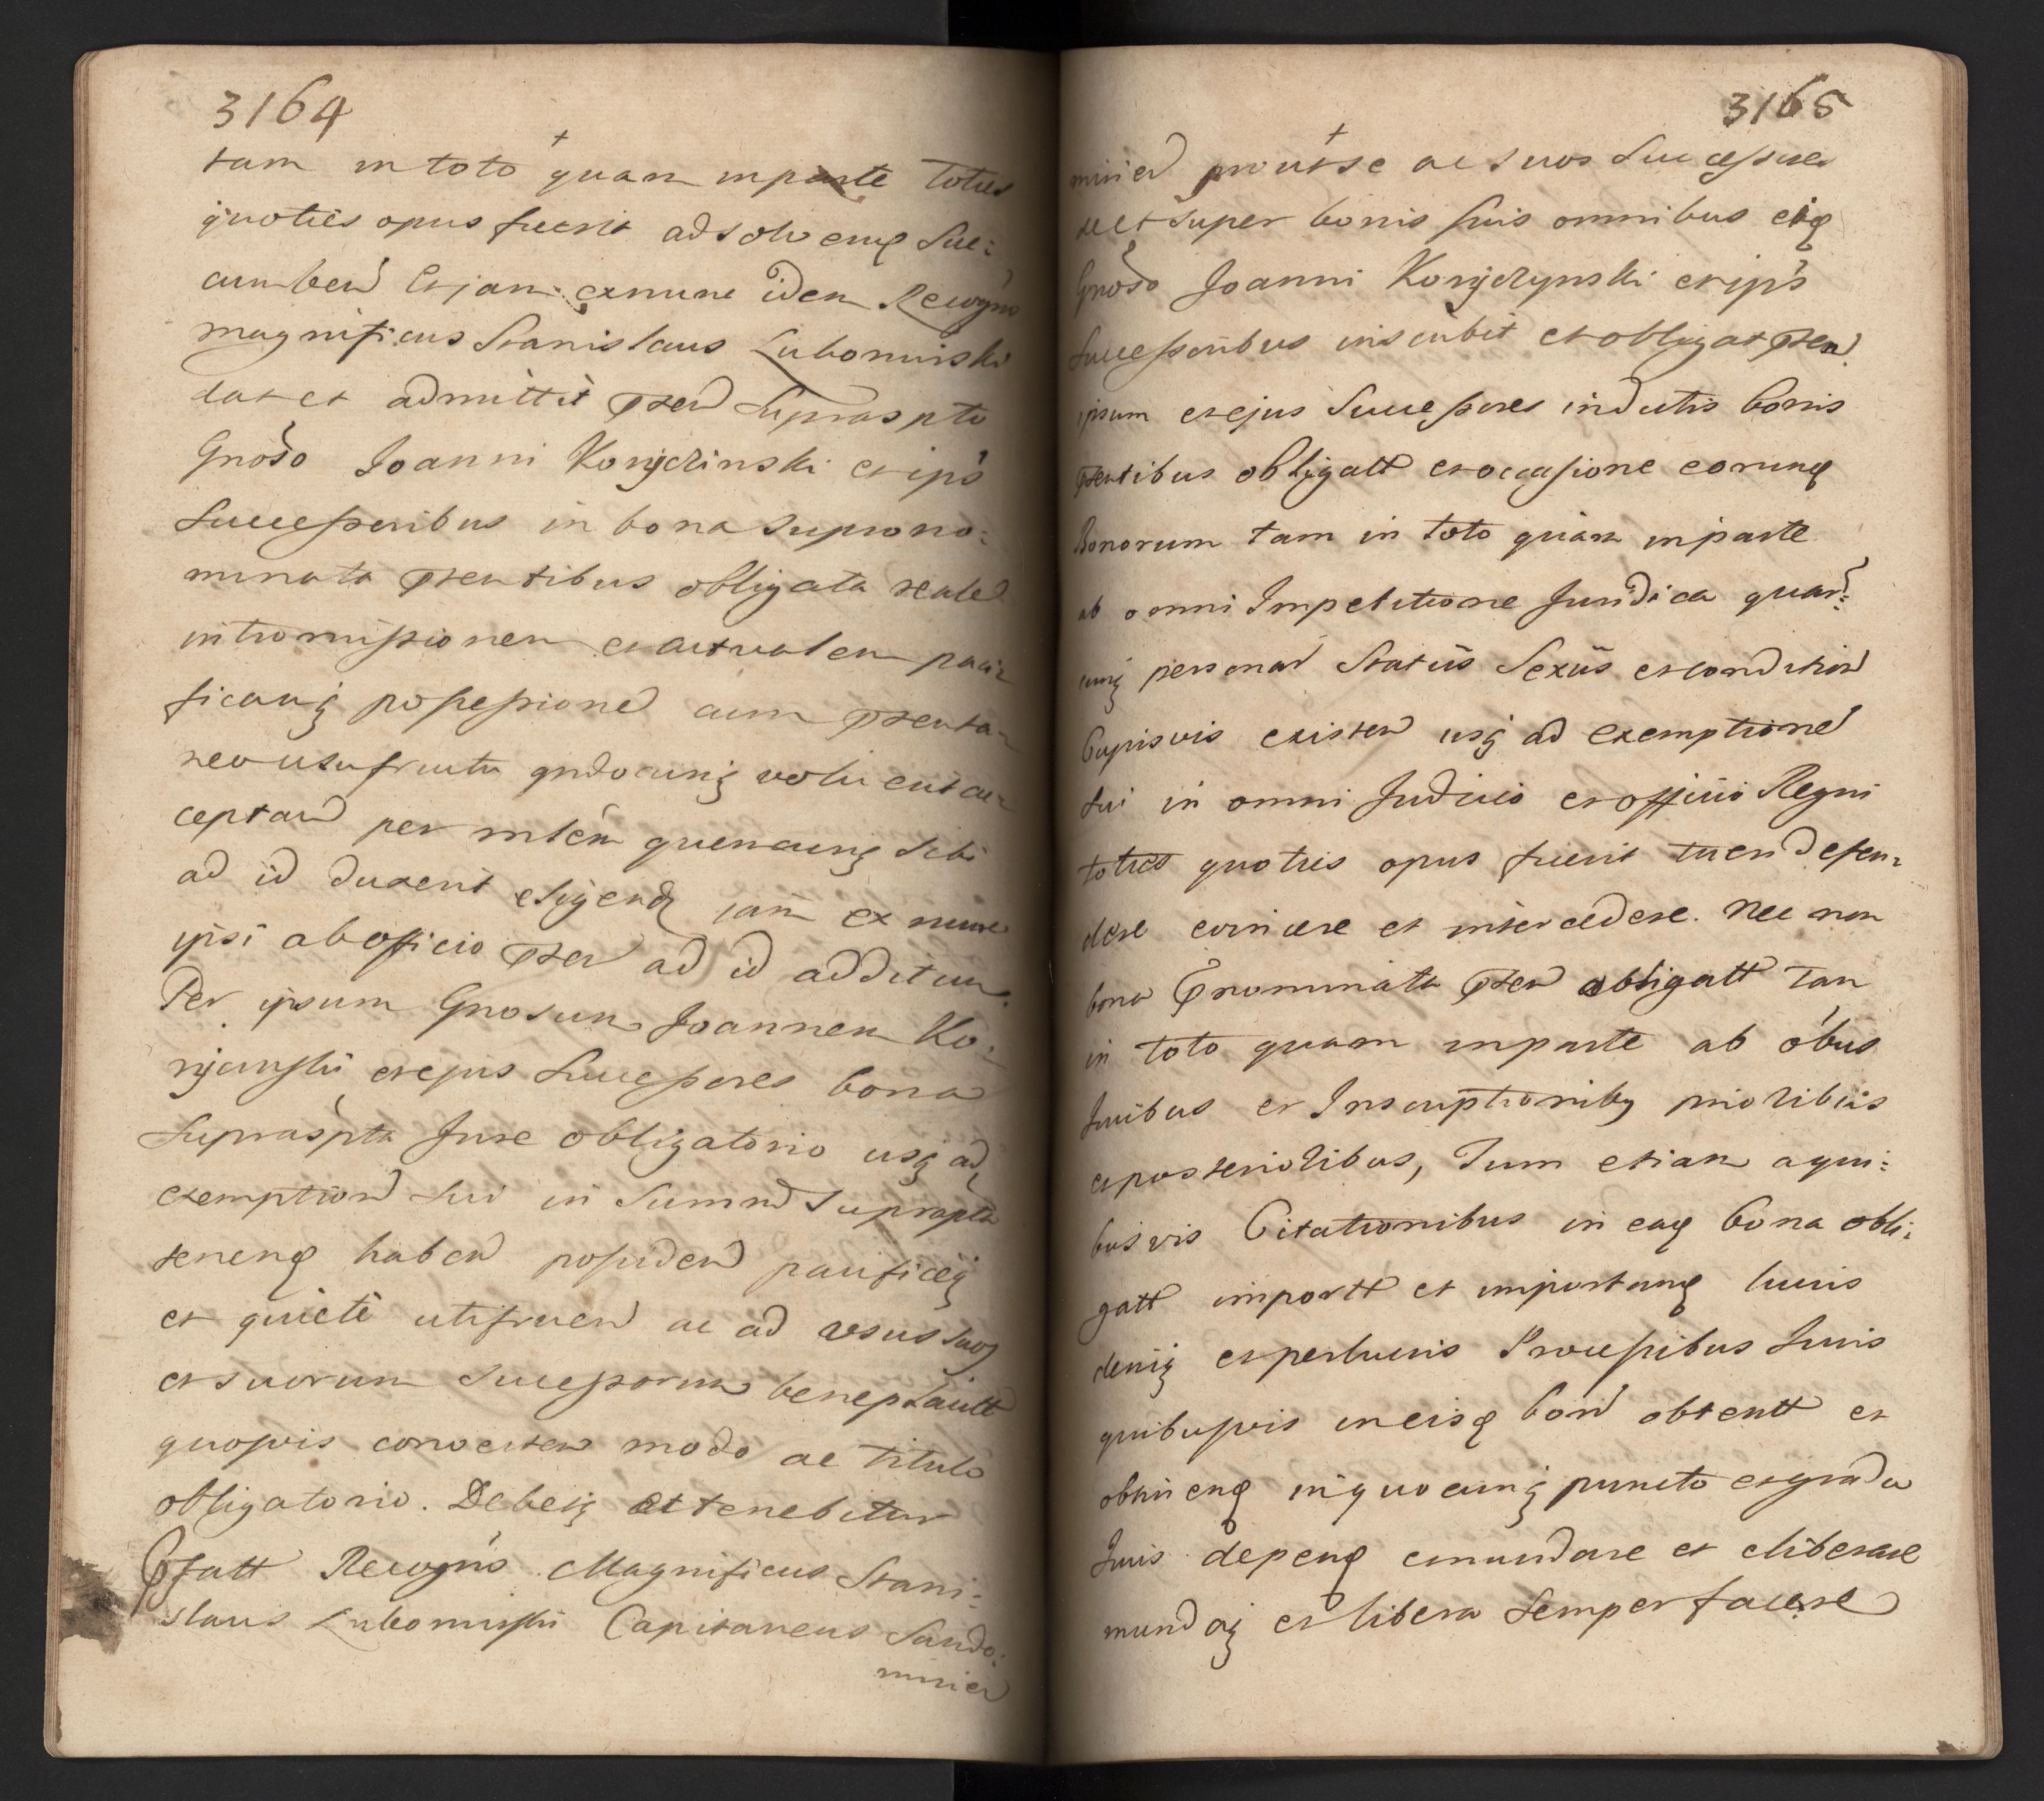 3164
+
tam in toto quam in parte toties
quoties opus fuerit ad solvenq Suc:
cumbend Et jam exnunc idem Recogns
magnificus Stanislaus Lubomirski
dat et admittit pnted Supraspto
Gnoso Joanni Konjczinski et ips
Successoribus in bona supono:
minata pntentibus obligata realed
intromissionem et actualem paci:
ficamq possessioned cum pntenta:
neo usufructu qndocunq voluerit ac:
ceptand per mlem quemcunq Sibi
ad id duxerit eligend jam ex nunc
ipsi ab officio pnted ad id additum:
Per ipsum Gnosum Joannem Ko:
njczinski et ejus Successores bona
Supraspta Jure obligatorio usq ad
exemptiond sui in Summd Supraspta
tenenq habend possidend pacificeq
et quiete utifruend ac ad usus suos
et suorum Successorum beneplacitt
quosvis convertend modo ac titulo
obligatorio. Debetq et tenebitur
Pfatt Recogns Magnificus Stani:
slaus Lubomirski Capitaneus Sando:
miried
3165
+
miried prout se ac suos Successores
et super bonis suis omnibus eisq
Gnoso Joanni Konjczynski et ips
Successoribus inscribit et obligat pnted
ipsum et ejus Successores in dictis bonis
pntentibus obligatt et occasione eorunq
Bonorum tam in toto quam in parte
ab omni Impetitione Juridica quar:
cunq personar Status Sexus et condition
Cujusvis existend usq ad exemptioned
sui in omni Judicio et officio Regni
toties quoties opus fuerit tueri defen:
dere evincere et intercedere. Nec non
bona Pnominata pnted obligatt tam
in toto quam in parte ab obus
Juribus et Inscriptionibq prioribus
et posterioribus, Tum etiam a qui:
busvis Citationibus in eaq bona obli:
gatt importt et importanq lucris
deniq et perlucris Processibus Juris
quibusvis in eisq bond obtentt et
obtinenq in quocunq puncto et gradu
Juris depenq emundare et eliberare
mundaq et libera semper facere